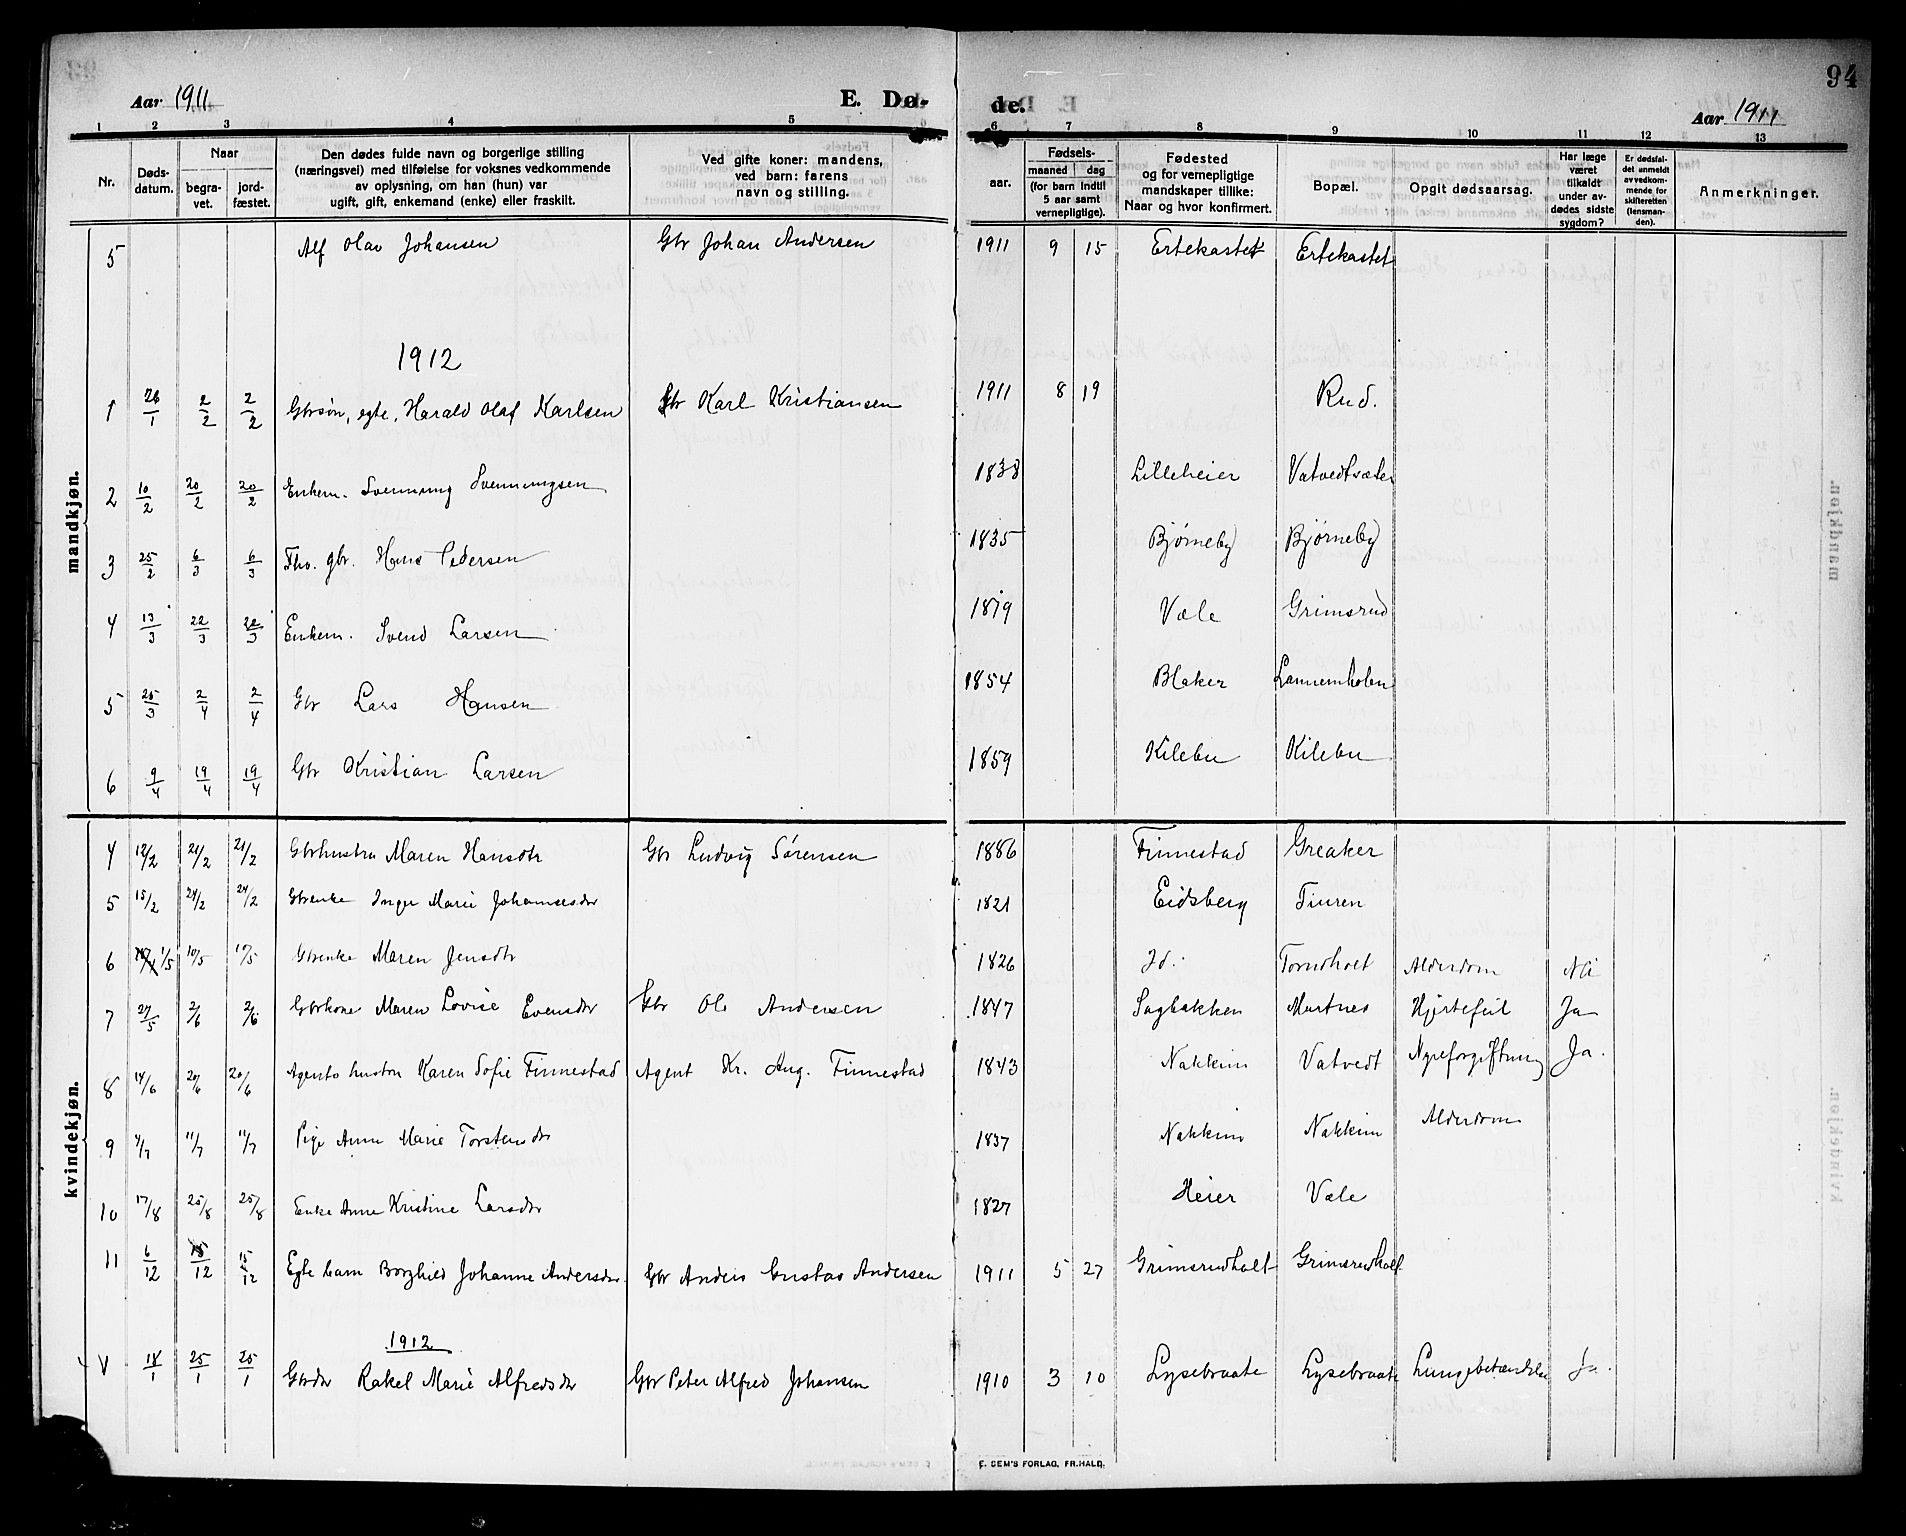 94
Aar 1911 E. Dø- de. Aar 1911
1 2 3 4 5 6 7 8 9 10 11 12 13
Nr. Dødsdatum. Naar begravet. jordfæstet. Den dødes fulde navn og borgerlige stilling (næringsvei) med tilføielse for voksnes vedkommende av oplysning, om han (hun) var ugift, gift, enkemand (enke) eller fraskilt. Ved gifte koner: mandens, ved barn: farens navn og stilling. Fødsels- aar. maaned dag (for barn indtil 5 aar samt vernepligtige). Fødested og for vernepligtige mandskaper tillike: Naar og hvor konfirmert. Bopæl. Opgit dødsaarsag. Har læge været tilkaldt under avdødes sidste sygdom? Er dødsfaldet anmeldt av vedkommende for skifteretten (lensmanden). Anmerkninger.
mandkjøn.
5 Alf Olav Johansen Gbr Johan Andersen 1911 9 15 Ertekastet Ertekastet
1912
1 26/1 2/2 2/2 Gbrsøn, egte, Harald Olaf Karlsen Gbr Karl Kristiansen 1911 8 19 Rud.
2 10/2 20/2 20/2 Enkem. Svenning Svenningsen 1838 Lilleheier Vatvedtsæter
3 25/2 6/3 6/3 Fho. gbr. Hans Pedersen 1835 Bjørneby Bjørneby
4 13/3 22/3 22/3 Enkem. Svend Larsen 1819 Væle Grimsrud
5 25/3 2/4 2/4 Gbr Lars Hansen 1854 Blaker Lannemholen
6 9/4 19/4 19/4 Gbr Kristian Larsen 1859 Kilebu Kilebu
kvindekjøn.
4 12/2 21/2 21/2 Gbrhustru Maren Hansdtr Gbr Ludvig Sørensen 1886 Finnestad Greaker
5 15/2 24/2 24/2 Gbrenke Inger Marie Johannesdtr 1821 Eidsberg Tiuren
6 1/5 10/5 10/5 Gbrenke Maren Jensdtr 1826 Id. Tornholt Alderdom Nei
7 27/5 2/6 2/6 Gbrkone Maren Lovise Evensdtr Gbr Ole Andersen 1847 Sagbakken Martnes Hjertefeil Ja
8 14/6 20/6 20/6 Agents hustru Karen Sofie Finnestad Agent Kr. Aug. Finnestad 1843 Nakkim Vatvedt Nyreforgiftning Ja.
9 4/7 11/7 11/7 Pige Anne Marie Torstensdtr 1837 Nakkim Nakkim Alderdom
10 17/8 25/8 25/8 Enke Anne Kristine Larsdtr 1827 Heier Væle
11 6/12 15/12 15/12 Egte barn Borghild Johanne Andersdtr. Gbr Anders Gustav Andersen 1911 5 27 Grimsrudholt Grimsrudholt
1912
1 18/1 25/1 25/1 Gbrdtr Rakel Marie Alfredsdtr Gbr Peter Alfred Johansen 1910 3 10 Lysebraate Lysebraate Lungebetændelse Ja.
E. SEM'S FORLAG, FR.HALD.